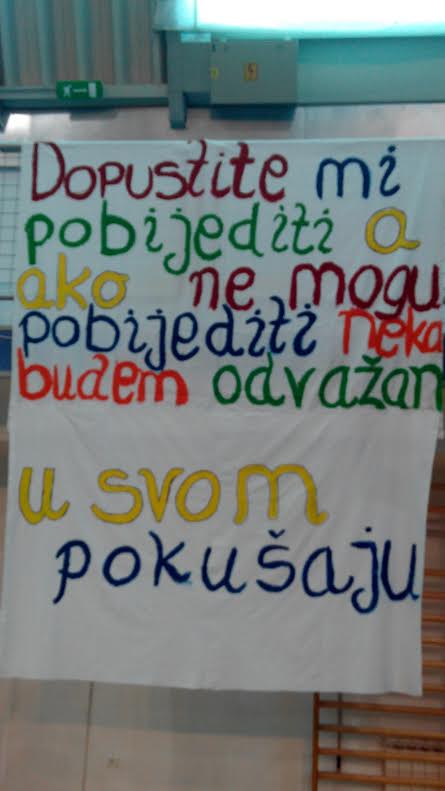 Dopustite mi
pobijediti a
ako ne mogu
pobijediti neka
budem odvažan
u svom
pokušaju